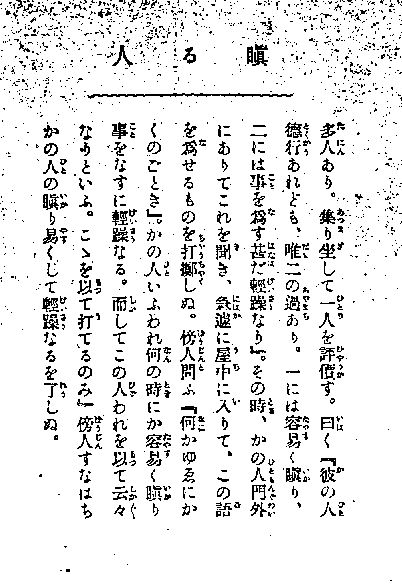 瞋る人
多人あり。集り坐して一人を評價す。曰く『彼の人
德行あれども、唯二の過あり。一には容易く瞋り、
二には事を爲す甚だ輕躁なり』。その時、かの人門外
にありてこれを聞き、急遽に屋中に入りて、この語
を爲せるものを打擲しぬ。傍人問ふ『何かゆゑにか
くのごとき』。かの人いふわれ何の時にか容易く瞋り
事をなすに輕躁なる。而してこの人われを以て云々
なりといふ。こゝを以て打てるのみ』傍人すなはち
かの人の瞋り易くして輕躁なるを了しぬ。